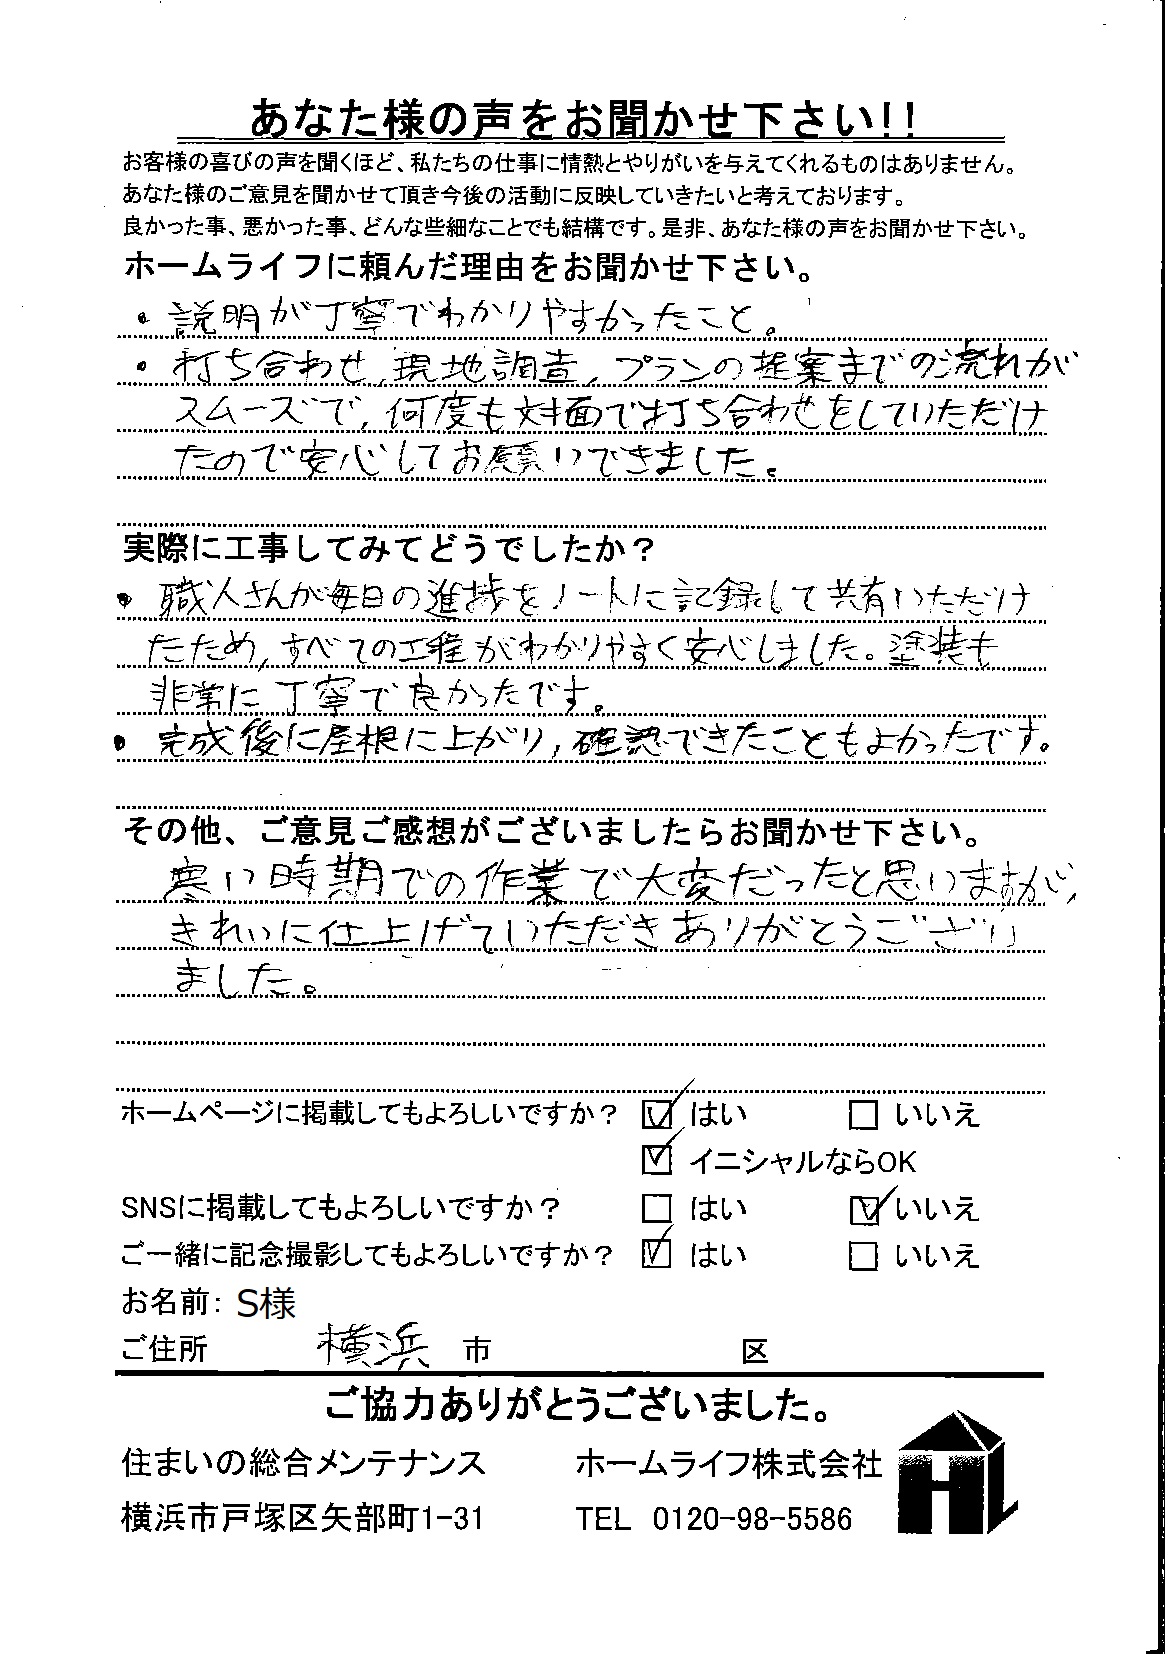 あなた様の声をお聞かせ下さい!!
お客様の喜びの声を聞くほど、私たちの仕事に情熱とやりがいを与えてくれるものはありません。
あなた様のご意見を聞かせて頂き今後の活動に反映していきたいと考えております。
良かった事、悪かった事、どんな些細なことでも結構です。是非、あなた様の声をお聞かせ下さい。
ホームライフに頼んだ理由をお聞かせ下さい。
・説明が丁寧でわかりやすかったこと。
・打ち合わせ,現地調査,プランの提案までの流れが
スムーズで,何度も対面で打ち合わせをしていただけ
たので安心してお願いできました。
実際に工事してみてどうでしたか？
・職人さんが毎日の進捗をノートに記録して共有いただけ
たため,すべての工程がわかりやすく安心しました。塗装も
非常に丁寧で良かったです。
・完成後に屋根に上がり,確認できたこともよかったです。
その他、ご意見ご感想がございましたらお聞かせ下さい。
寒い時期での作業で大変だったと思いますが,
きれいに仕上げていただきありがとうござい
ました。
ホームページに掲載してもよろしいですか？ ☑ はい □ いいえ
☑ イニシャルならOK
SNSに掲載してもよろしいですか？ □ はい ☑ いいえ
ご一緒に記念撮影してもよろしいですか？ ☑ はい □ いいえ
お名前: S様
ご住所 横浜 市 区
ご協力ありがとうございました。
住まいの総合メンテナンス ホームライフ株式会社
横浜市戸塚区矢部町1-31 TEL 0120-98-5586
HL